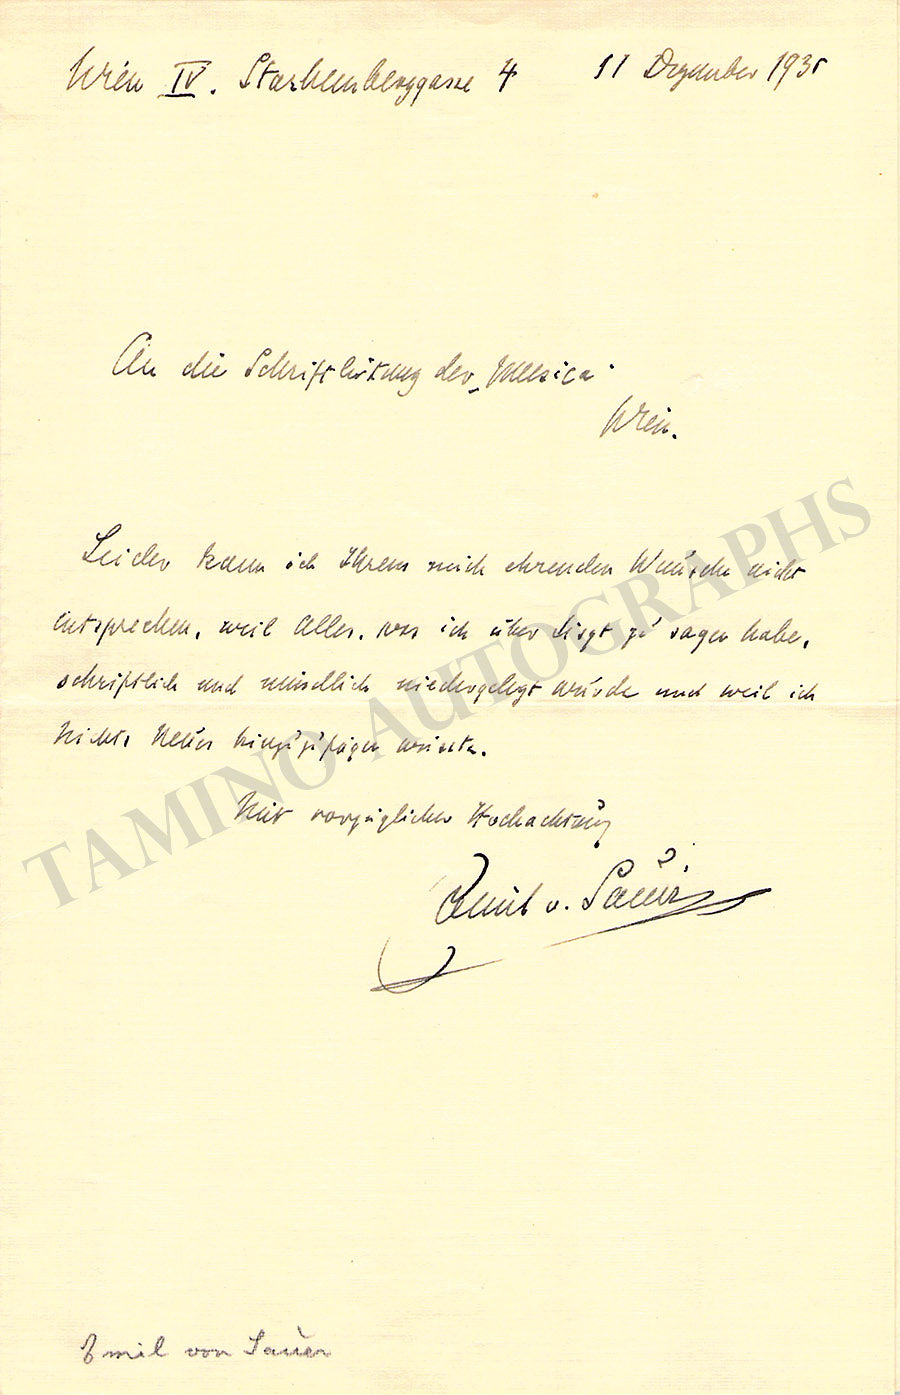 Wien IV. Starhemberggasse 4 11 Dezember 1935
An die Schriftleitung der „Musica"
Wien.
Leider kann ich Ihrem mich ehrenden Wunsche nicht
entsprechen, weil Alles, was ich über Liszt zu sagen habe,
schriftlich und mündlich niedergelegt wurde und weil ich
Nichts Neues hinzuzufügen wüsste.
Mit vorzüglicher Hochachtung
Emil v. Sauer
TAMINO AUTOGRAPHS
Emil von Sauer